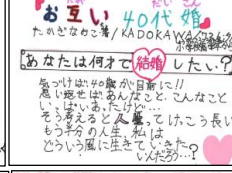 お互い 40代婚
たかぎなおこ著/KADOKAWA/
あなたは何才で結婚したい?
気づけば40歳が目前に!!
思い返せばあんなこと、こんなこと
いっぱいあったけど…
そう考えると人生ってけっこう長い
もう半分の人生、私は
どういう風に生きていきた
いんだろう…?